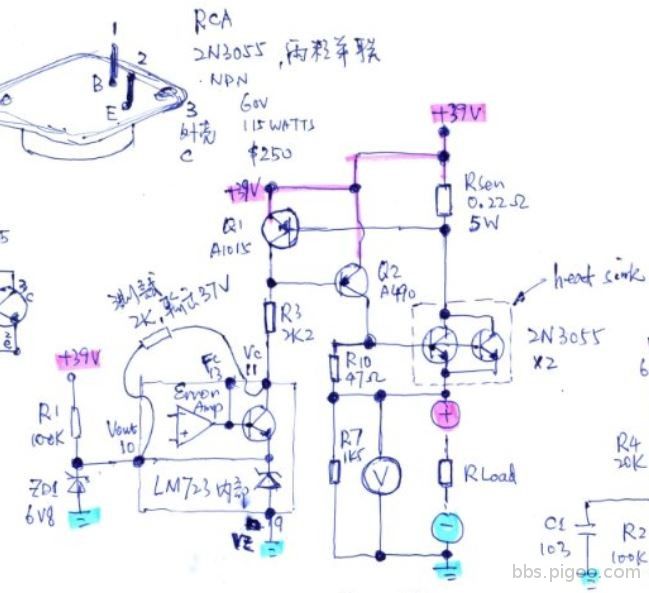 RCA
2N3055, 兩粒并联
NPN
60V
115WATTS
$250
1
2
B
E
3
外壳
C
+39V
Rsen
0.22Ω
5W
+39V
Q1
A1015
Q2
A490
heat sink
测试
2K, 輸出37V
R3
2K2
2N3055
X2
5
3
C
2
e
+39V
R1
100K
Vout
10
Fc
13
Vc
11
Error
Amp
R10
47Ω
R7
1K5
V
+
RLoad
-
ZD1
6V8
LM723内部
9
VZ
6
R4
20K
C1
103
R2
100K
bbs.pigoo.com